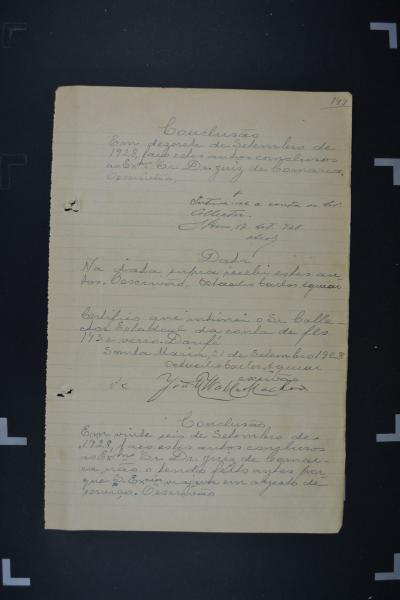 Conclusão
Em dezesete de Setembro de
1928, faço estes autos conclusos
ao Exmo. Sr. Dr. Juiz de Comarca.
O escrivão,
Intime-se a conta ao Sr.
Collector.
17 Set. 928.
Data
Na data supra recebi estes au-
tos. O escrivão, Octacilio Carlos Aguiar
Certifico que intimei o Sr. Colle-
ctor Estadoal da conta de fls
143 e verso. Dou fé
Santa Maria, 21 de Setembro 1928
Octacilio Carlos Aguiar
escrivão
Conclusão
Em vinte seis de Setembro de
1928, faço estes autos conclusos
ao Exmo. Sr. Dr. Juiz de Comar-
ca, não o tendo feito antes por-
que S. Excia em objecto de
serviço. O escrivão